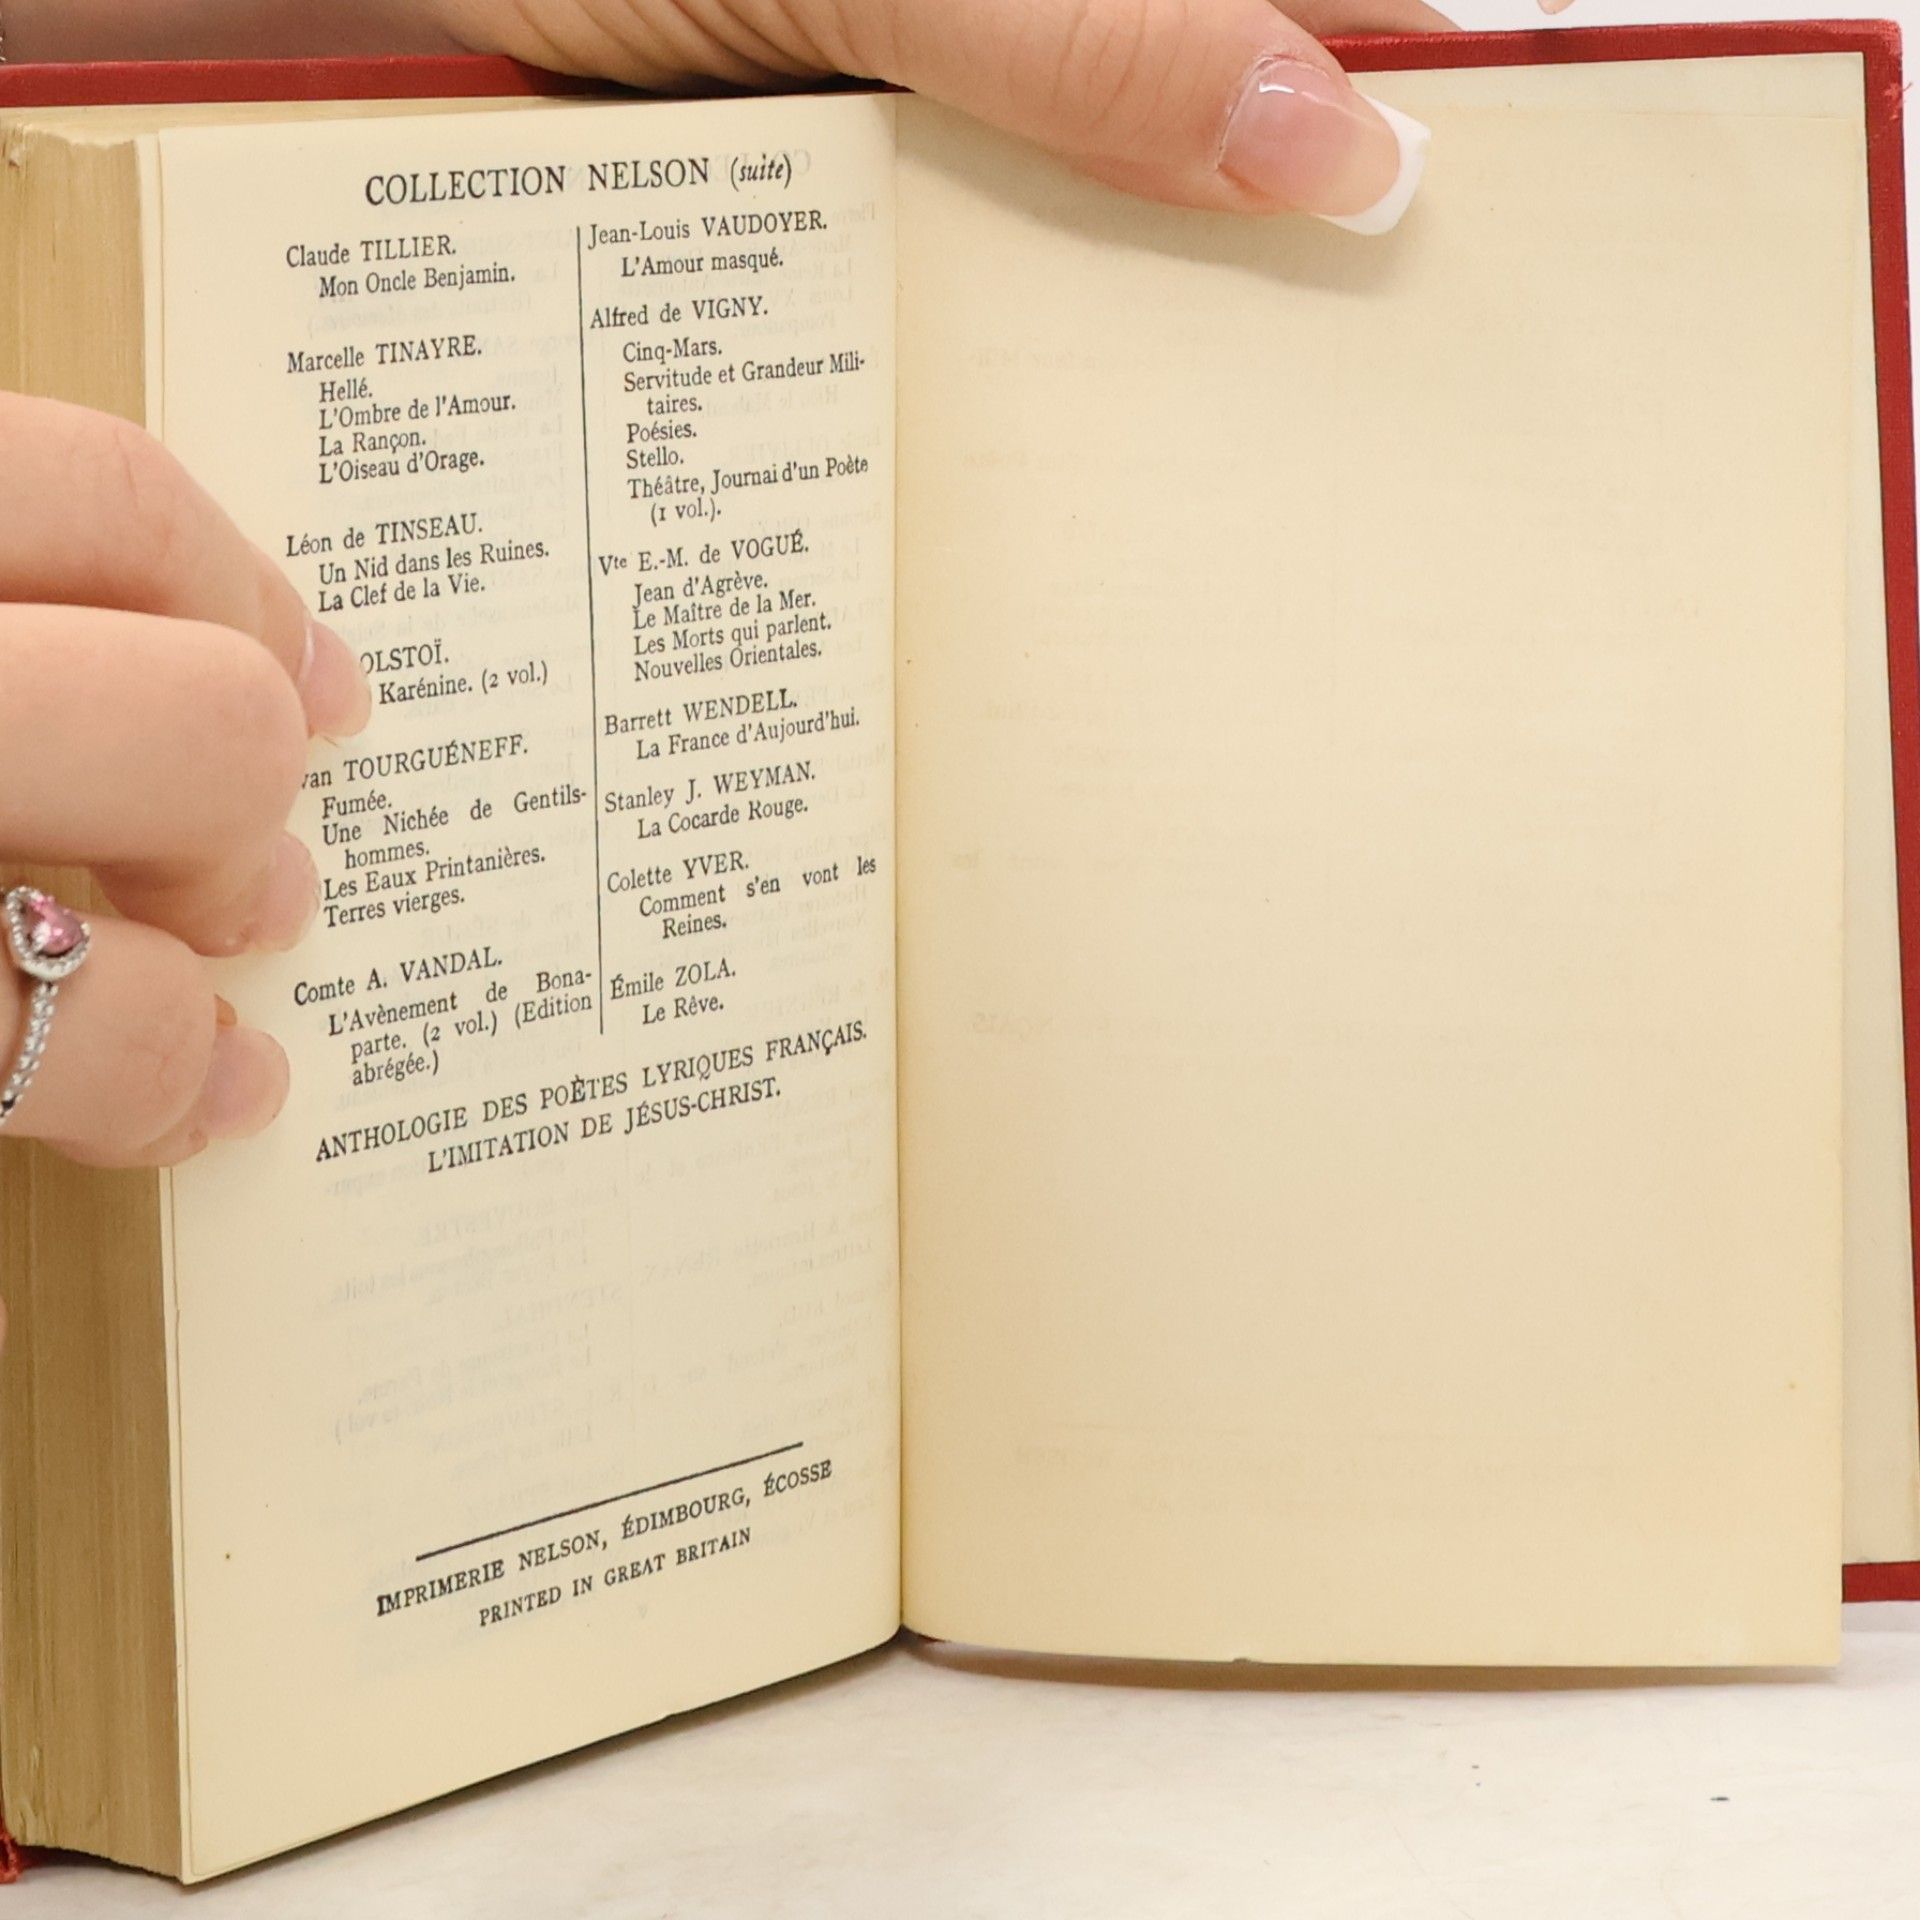 COLLECTION NELSON (suite)
Claude TILLIER.
Mon Oncle Benjamin.
Marcelle TINAYRE.
Hellé.
L'Ombre de l'Amour.
La Rançon.
L'Oiseau d'Orage.
Léon de TINSEAU.
Un Nid dans les Ruines.
La Clef de la Vie.
OLSTOÏ.
Karénine. (2 vol.)
van TOURGUÉNEFF.
Fumée.
Une Nichée de Gentils-
hommes.
Les Eaux Printanières.
Terres vierges.
Comte A. VANDAL.
L'Avènement de Bona-
parte. (2 vol.) (Edition
abrégée.)
Jean-Louis VAUDOYER.
L'Amour masqué.
Alfred de VIGNY.
Cinq-Mars.
Servitude et Grandeur Mili-
taires.
Poésies.
Stello.
Théâtre, Journal d'un Poète
(1 vol.).
Vte E.-M. de VOGUÉ.
Jean d'Agrève.
Le Maître de la Mer.
Les Morts qui parlent.
Nouvelles Orientales.
Barrett WENDELL.
La France d'Aujourd'hui.
Stanley J. WEYMAN.
La Cocarde Rouge.
Colette YVER.
Comment s'en vont les
Reines.
Émile ZOLA.
Le Rêve.
ANTHOLOGIE DES POÈTES LYRIQUES FRANÇAIS.
L'IMITATION DE JÉSUS-CHRIST.
IMPRIMERIE NELSON, ÉDIMBOURG, ÉCOSSE
PRINTED IN GREAT BRITAIN